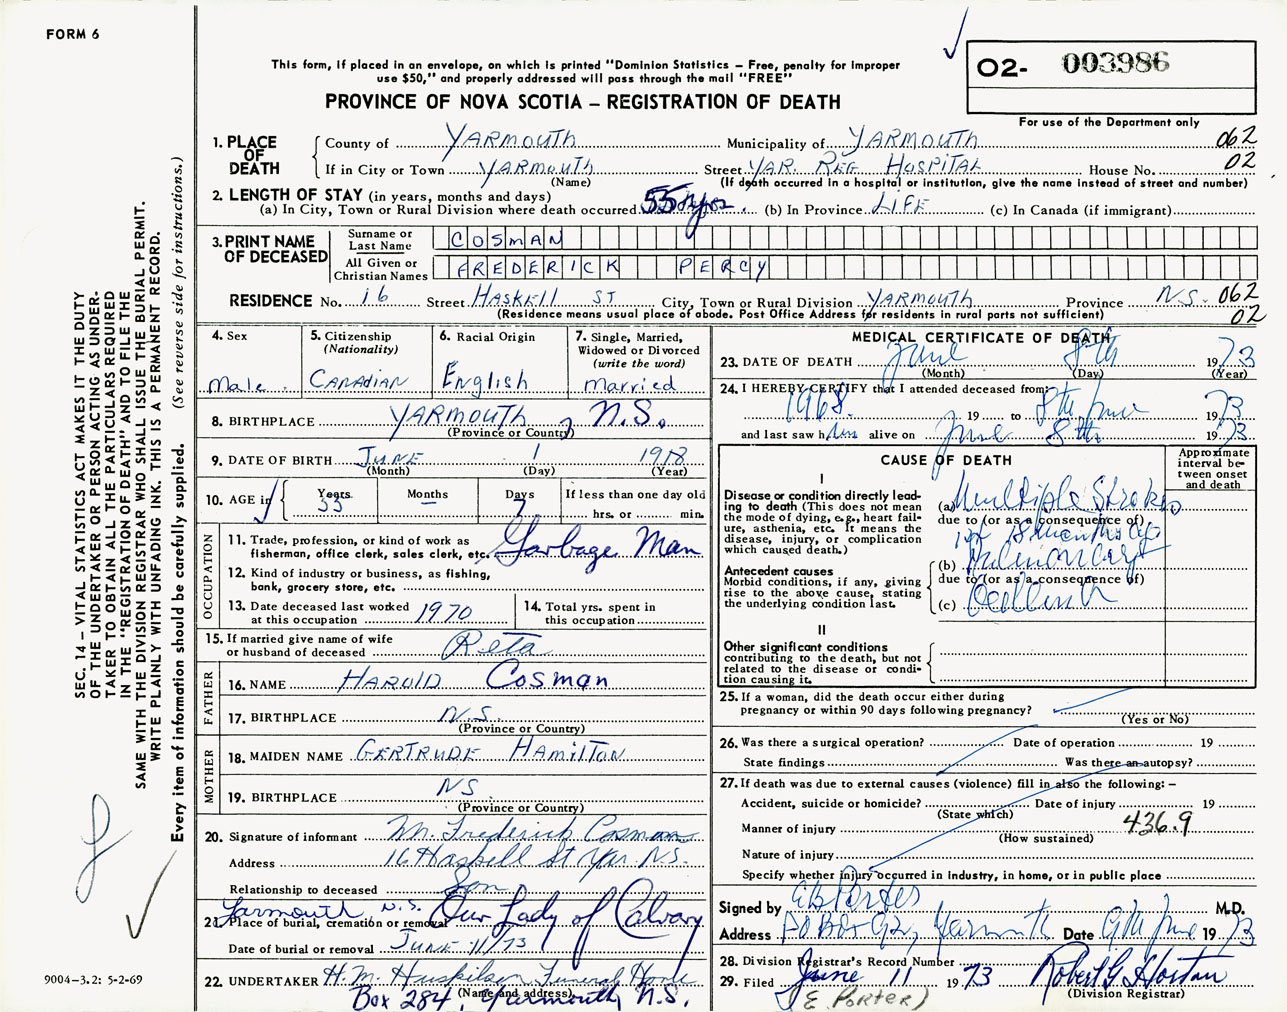 FORM 6
This form, if placed in an envelope, on which is printed "Dominion Statistics – Free, penalty for improper
use $50," and properly addressed will pass through the mail "FREE"
PROVINCE OF NOVA SCOTIA – REGISTRATION OF DEATH
O2- 003986
For use of the Department only
1. PLACE OF DEATH
County of YARMOUTH Municipality of YARMOUTH 062
If in City or Town YARMOUTH Street YAR. REG HOSPITAL House No. 02
(Name) (If death occurred in a hospital or institution, give the name instead of street and number)
2. LENGTH OF STAY (in years, months and days)
(a) In City, Town or Rural Division where death occurred 55 yrs. (b) In Province LIFE (c) In Canada (if immigrant)
3. PRINT NAME OF DECEASED
Surname or Last Name COSMAN
All Given or Christian Names FREDERICK PERCY
RESIDENCE No. 16 Street HASKELL ST City, Town or Rural Division YARMOUTH Province N.S. 062
(Residence means usual place of abode. Post Office Address for residents in rural parts not sufficient) 02
4. Sex
Male
5. Citizenship
(Nationality)
CANADIAN
6. Racial Origin
English
7. Single, Married,
Widowed or Divorced
(write the word)
married
8. BIRTHPLACE YARMOUTH, N.S.
(Province or Country)
9. DATE OF BIRTH JUNE 1 1918
(Month) (Day) (Year)
10. AGE in
Years 55 Months – Days 7
If less than one day old
hrs. or min.
OCCUPATION
11. Trade, profession, or kind of work as
fisherman, office clerk, sales clerk, etc. Garbage Man
12. Kind of industry or business, as fishing,
bank, grocery store, etc.
13. Date deceased last worked
at this occupation 1970
14. Total yrs. spent in
this occupation
15. If married give name of wife
or husband of deceased Reta
FATHER
16. NAME HAROLD Cosman
17. BIRTHPLACE N.S.
(Province or Country)
MOTHER
18. MAIDEN NAME GERTRUDE HAMILTON
19. BIRTHPLACE NS
(Province or Country)
20. Signature of informant Mr. Frederick Cosman
Address 16 Haskell St Yar. N.S.
Relationship to deceased Son
Yarmouth N.S. Our Lady of Calvary
21. Place of burial, cremation or removal
Date of burial or removal JUNE 11/73
22. UNDERTAKER H.M. Huskilson Funeral Home
(Name and address)
Box 284, Yarmouth N.S.
MEDICAL CERTIFICATE OF DEATH
23. DATE OF DEATH June 8th 1973
(Month) (Day) (Year)
24. I HEREBY CERTIFY that I attended deceased from:
1968 19 to 8th June 1973
and last saw him alive on June 8th 1973
CAUSE OF DEATH
Approximate
interval be-
tween onset
and death
I
Disease or condition directly lead-
ing to death (This does not
mean the mode of dying, e.g., heart fail-
ure, asthenia, etc. It means the
disease, injury, or complication
which caused death.)
(a) Multiple Strokes
due to (or as a consequence of)
Antecedent causes
Morbid conditions, if any, giving
rise to the above cause, stating
the underlying condition last.
(b) Pulmonary
due to (or as a consequence of)
(c)
II
Other significant conditions
contributing to the death, but not
related to the disease or condi-
tion causing it.
25. If a woman, did the death occur either during
pregnancy or within 90 days following pregnancy?
(Yes or No)
26. Was there a surgical operation? Date of operation 19
State findings Was there an autopsy?
27. If death was due to external causes (violence) fill in also the following: –
Accident, suicide or homicide? Date of injury 19
(State which)
Manner of injury 436.9
(How sustained)
Nature of injury
Specify whether injury occurred in industry, in home, or in public place
Signed by E B Porter M.D.
Address PO Box Yarmouth Date 9th June 1973
28. Division Registrar's Record Number
29. Filed June 11 1973 Robert G Horton
(E PORTER) (Division Registrar)
SEC. 14 – VITAL STATISTICS ACT MAKES IT THE DUTY
OF THE UNDERTAKER OR PERSON ACTING AS UNDER-
TAKER TO OBTAIN ALL THE PARTICULARS REQUIRED
IN THE "REGISTRATION OF DEATH" AND TO FILE THE
SAME WITH THE DIVISION REGISTRAR WHO SHALL ISSUE THE BURIAL PERMIT.
WRITE PLAINLY WITH UNFADING INK. THIS IS A PERMANENT RECORD.
Every item of information should be carefully supplied. (See reverse side for instructions.)
9004–3.2: 5-2-69